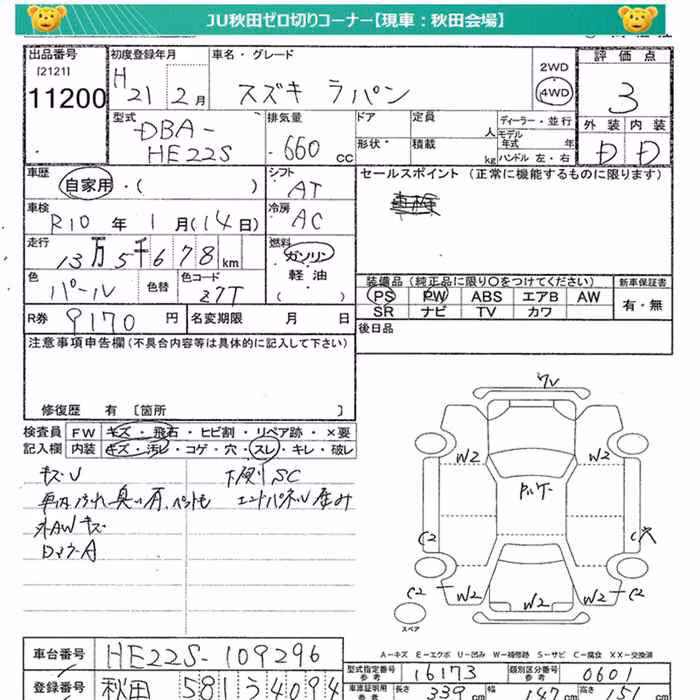 JU秋田ゼロ切りコーナー【現車：秋田会場】
出品番号 初度登録年月 車名・グレード 評価点
[2121]
11200 H21 2月 スズキ ラパン 2WD 4WD 3
型式 排気量 ドア 定員 人 ディーラー・並行 外装 内装
モデル年式 年
DBA- HE22S 660cc 形状 積載 kg ハンドル 左・右 D D
車歴 シフト セールスポイント（正常に機能するものに限ります）
自家用・( ) AT
車検 冷房
R10年 1月(14日) AC
走行 燃料
13万5千678km ガソリン
色 色替 色コード 軽油
パール Z7T ( )
装備品（純正品に限り○をつけてください） 新車保証書
PS PW ABS エアB AW 有・無
SR ナビ TV カワ
R券 9170円 名変期限 月 日
後日品
注意事項申告欄（不具合内容等は具体的に記入して下さい）
修復歴 有 〔箇所 〕
検査員 FW キズ・飛石・ヒビ割・リペア跡・×要
記入欄 内装 キズ・汚レ・コゲ・穴・スレ・キレ・破レ
キズU 下廻りSC
エンドパネル歪み
外AWキズ
ワレ
W2 W2
C2 穴
C2 W2 W2 W2 C2
スペア
A－キズ E－エクボ U－凹み W－補修跡 S－サビ C－腐食 XX－交換済
車台番号 HE22S-109296
型式指定番号 参考 16173 類別区分番号 参考 0601
登録番号 秋田 581 う 4094
車庫証明用 参考 長さ 339cm 幅 147cm 高さ 151cm